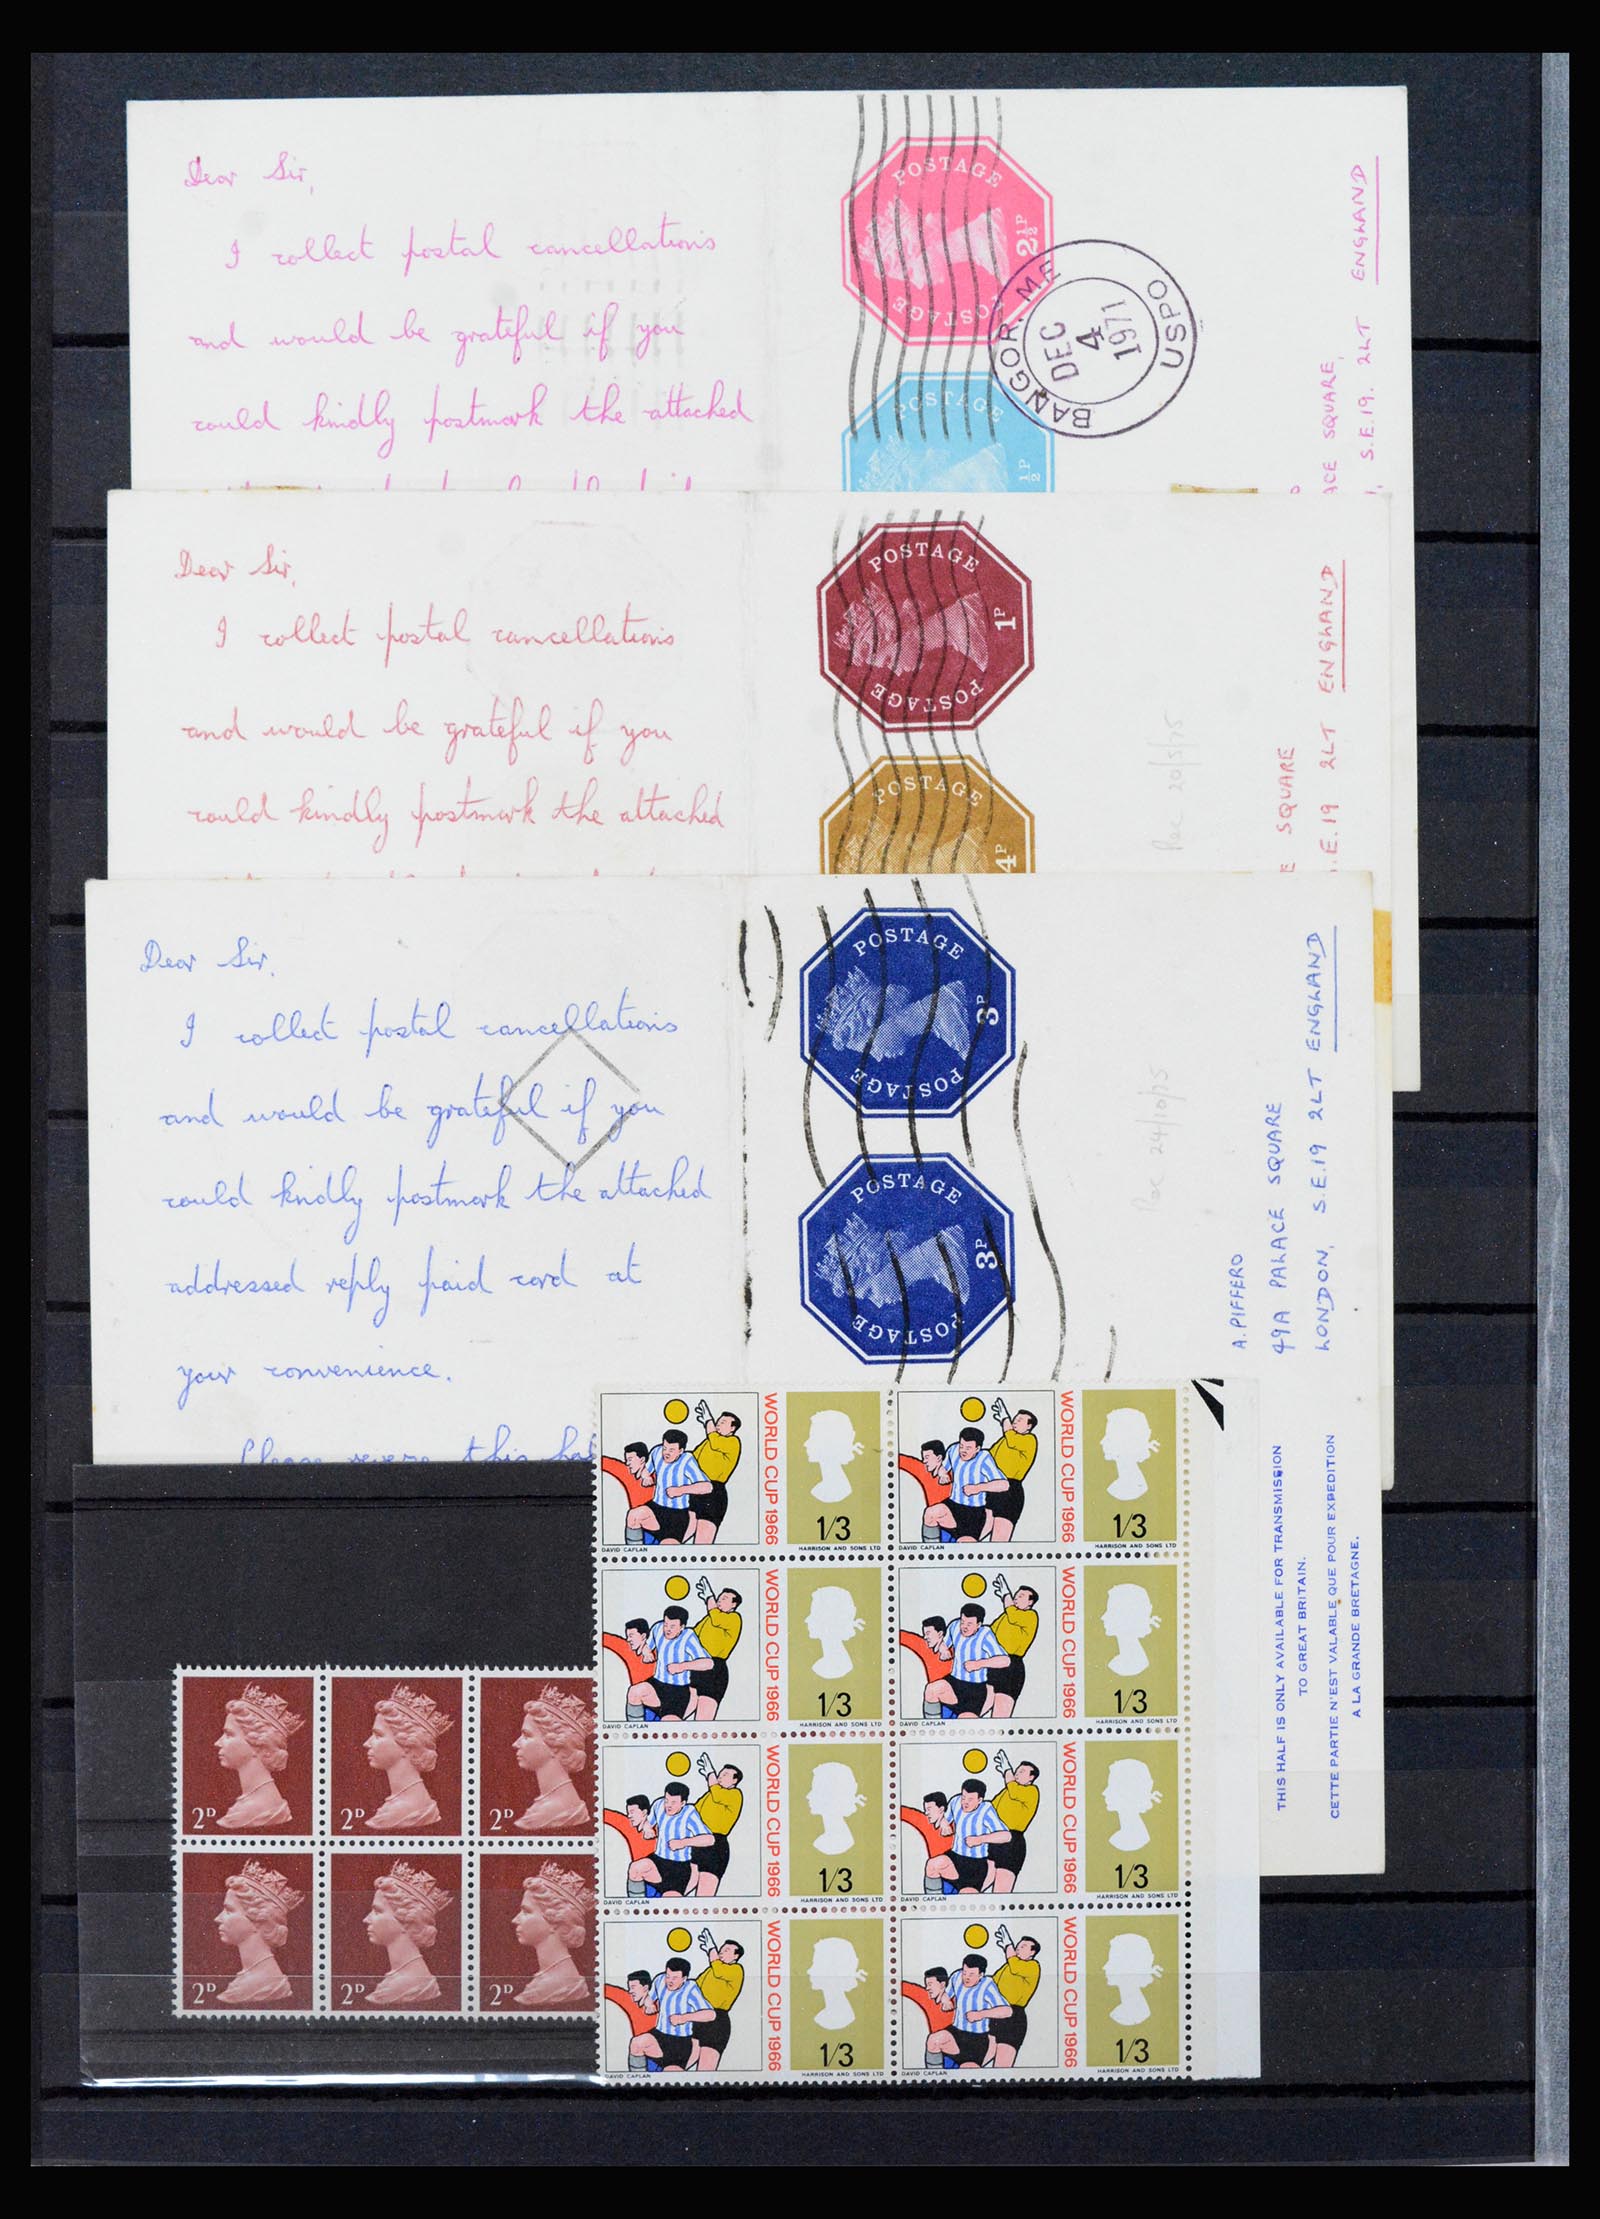 Dear Sir,
I collect postal cancellations
and would be grateful if you
could kindly postmark the attached
POSTAGE
2½P
POSTAGE
BANGOR. ME
DEC
4
1971
USPO
POSTAGE
½P
ACE SQUARE,
S.E.19. 2LT ENGLAND
Dear Sir,
I collect postal cancellations
and would be grateful if you
could kindly postmark the attached
POSTAGE
1P
POSTAGE
POSTAGE
4P
Rec 20/5/75
E SQUARE
.E.19 2LT ENGLAND
Dear Sir,
I collect postal cancellations
and would be grateful if you
could kindly postmark the attached
addressed reply paid card at
your convenience.
Please this
POSTAGE
3P
POSTAGE
POSTAGE
3P
POSTAGE
Rec 24/10/75
A. PIFFERO
49A PALACE SQUARE
LONDON, S.E.19 2LT ENGLAND
THIS HALF IS ONLY AVAILABLE FOR TRANSMISSION
TO GREAT BRITAIN.
CETTE PARTIE N'EST VALABLE QUE POUR EXPEDITION
A LA GRANDE BRETAGNE.
WORLD CUP 1966
1/3
DAVID CAPLAN
HARRISON AND SONS LTD
WORLD CUP 1966
1/3
DAVID CAPLAN
HARRISON AND SONS LTD
WORLD CUP 1966
1/3
DAVID CAPLAN
HARRISON AND SONS LTD
WORLD CUP 1966
1/3
DAVID CAPLAN
HARRISON AND SONS LTD
WORLD CUP 1966
1/3
DAVID CAPLAN
HARRISON AND SONS LTD
WORLD CUP 1966
1/3
DAVID CAPLAN
HARRISON AND SONS LTD
WORLD CUP 1966
1/3
DAVID CAPLAN
HARRISON AND SONS LTD
WORLD CUP 1966
1/3
DAVID CAPLAN
HARRISON AND SONS LTD
2D
2D
2D
2D
2D
2D